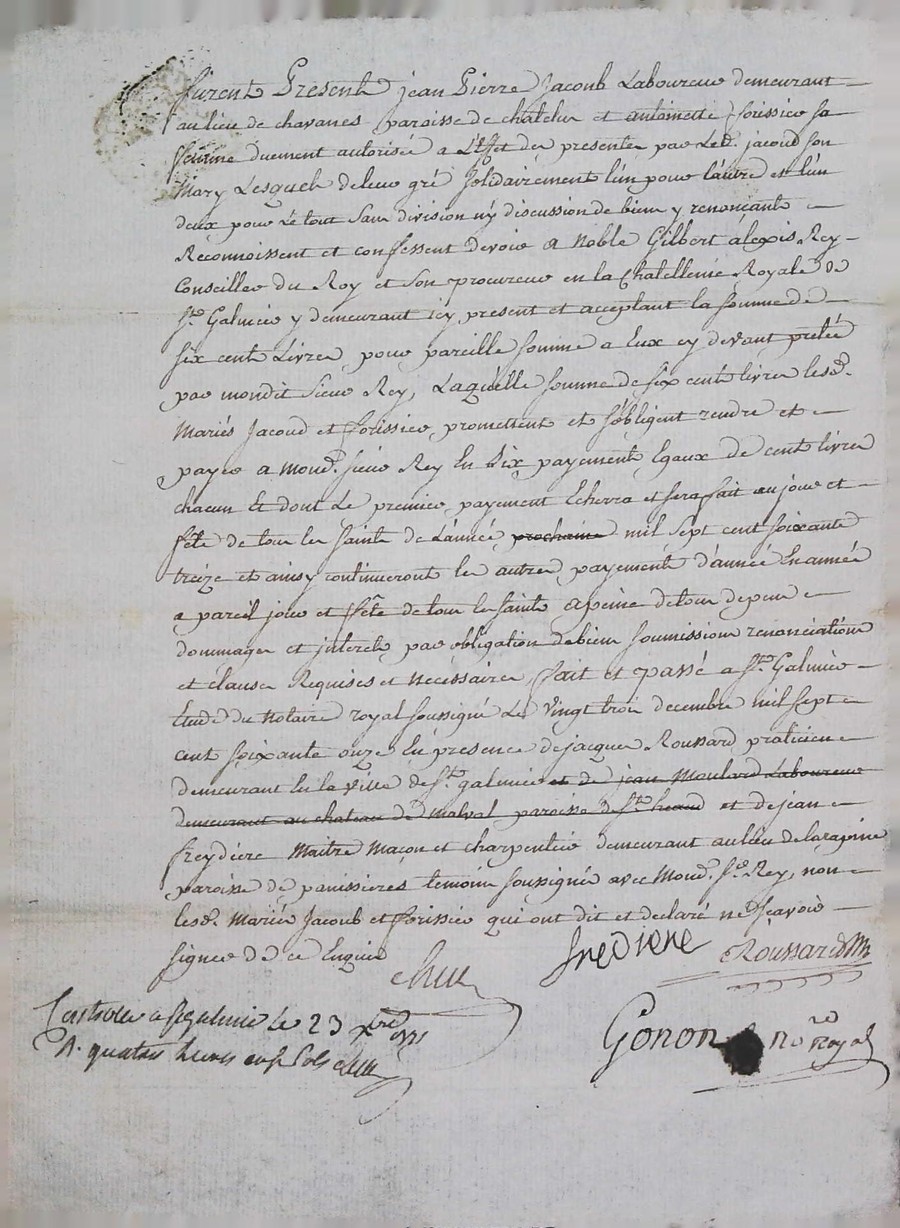 furent Presents jean Pierre Jacoub Laboureur demeurant
au lieu de chavanes paroisse de chatelus et antoinette forissier sa
femme duement autorisée a L'effet des presentes par Led. jacoud son
Mary Lesquels de leur gré Solidairement l'un pour l'autre et l'un
deux pour Le tout Sans division ny discussion de biens y renonçants
Reconnoissent et confessent devoir a Noble Gilbert alexis Rey
Conseiller du Roy et Son procureur en la Chatellenie Royale de
St. Galmier y demeurant icy present et acceptant la somme de
Six cents Livres pour pareille Somme a Eux cy devant pretée
par mondit Sieur Rey, Laquelle Somme de Six cents livres lesd.
Mariés Jacoud et forissier promettent et s'obligent rendre et
payer a mond. sieur Rey En Six payements Egaux de cent livres
chacun Et dont Le premier payement Echerra et sera fait au jour et
fête de tous les Saints de L'année prochaine mil sept cent soixante
treize et ainsy continueront les autres payements d'année En année
a pareil jour et fête de tous les saints a peine de tous depens
dommages et interets par obligation de biens soumissions renonciations
et clauses Requises et necessaires, fait et passé a St. Galmier
Etude du Notaire royal soussigné Le Vingt trois decembre mil sept
cent soixante onze En presence de jacques Roussard praticien
demeurant En la ville de St. galmier et de jean Moulard Laboureur
demeurant au chateau de malval paroisse de St. heand et de jean
freydiere Maitre Maçon et charpentier demeurant au lieu de
paroisse de panissieres temoins soussignés avec Mond. Sr. Rey, non
lesd. Mariés Jacoub et forissier qui ont dit et declaré ne sçavoir
signer de ce Enquis
frediere Roussard
a St galmier le 23 xbre 1771
Gonon no re Royal
R. quatre livres Sols